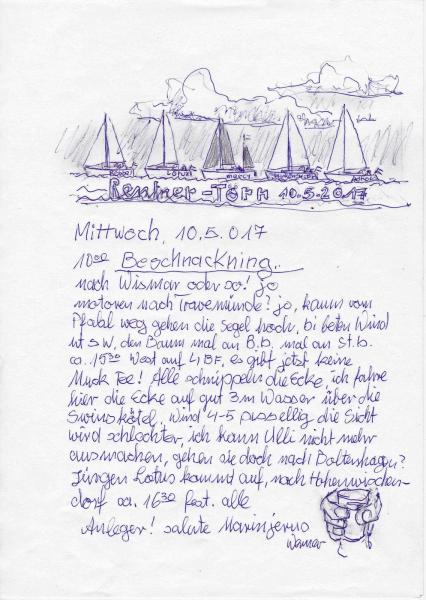 Rentner-Törn 10.5.2017
Mittwoch, 10.5.017
10°° Beschnackning..
nach Wismar oder so! jo
motoren nach Travemünde? jo, kaum vom
Pfahl weg gehen die Segel hoch, bi beten Wind
ut SW, den Baum mal an B.b. mal an St.b.
ca. 15³⁰ West auf 4 BF, es gibt jetzt keine
Muck Tee! Alle schnüppeln die Ecke, ich fahre
hier die Ecke auf gut 3m Wasser über die
Swinskötel, Wind 4-5 die Sicht
wird schlechter, ich kann Ulli nicht mehr
ausmachen, gehen sie doch nach Boltenhagen?
Jürgen Lotus kommt auf, nach Hohenwischen-
dorf ca. 16³⁰ fest. alle
Anleger! salute Marinjerno
Werner